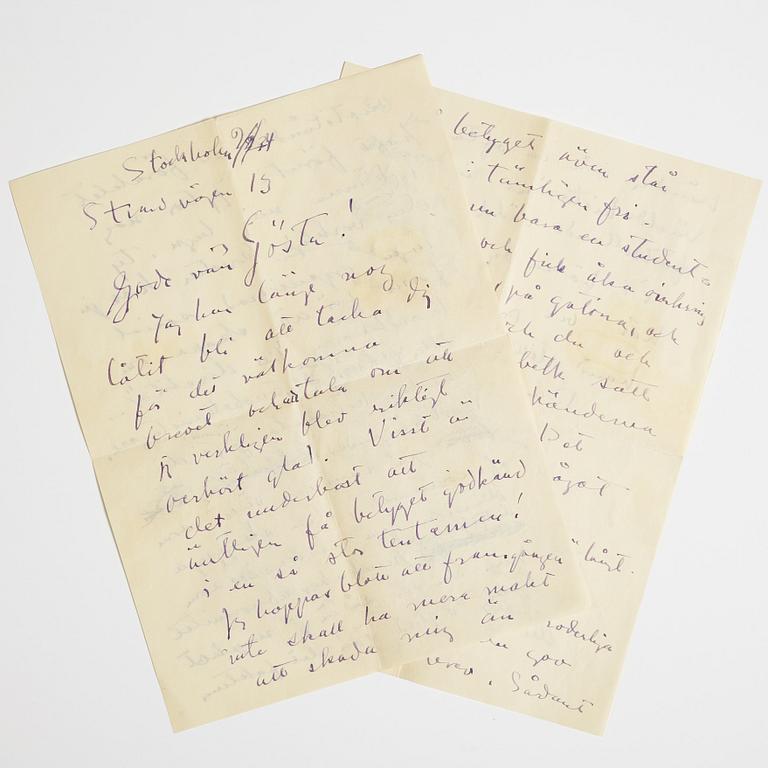 Stockholm
Strandvägen 15
Gode vän Gösta!
Jag har länge nog
låtit bli att tacka dig
för det välkomna
brevet och tala om att
jag verkligen blev riktigt
oerhört glad. Visst är
det underbart att
äntligen få betyget godkänd
i en så stor tentamen!
Jag hoppas blott att framgången
inte skall ha mera makt
att skada mig än
betyget även står
: tämligen fri.
bara en student
och fick åka omkring
på gatorna, och
och du och
sätt
händerna
Det
något
långt.
en
Sådant